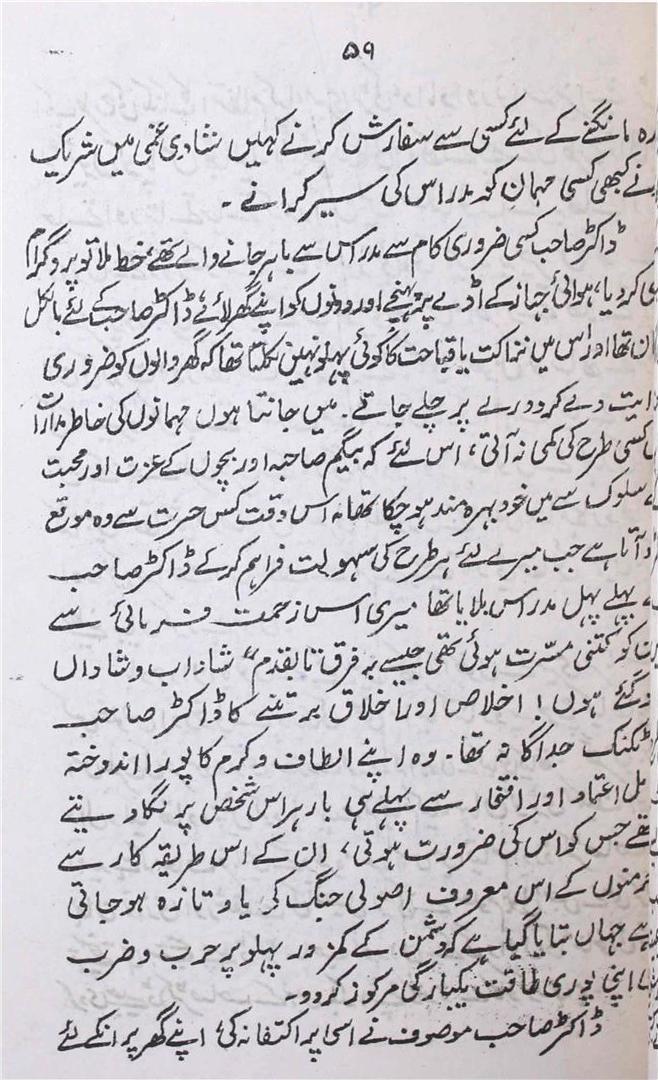 ۵۹
رہ مانگنے کے لئے کسی سے سفارش کرنے کہیں شادی غمی میں شریک
نے کبھی کسی مہمان کو مدراس کی سیر کرانے ۔
ڈاکٹر صاحب کسی ضروری کام سے مدراس سے باہر جانے والے تھے، خط ملا تو پروگرام
کر دیا، ہوائی جہاز کے اڈے پر پہنچے اور دونوں کو اپنے گھر لائے، ڈاکٹر صاحب کے لئے بالکل
ان تھا اور اس میں نزاکت یا قباحت کا کوئی پہلو نہیں نکلتا تھا کہ گھر والوں کو ضروری
ایت دے کر دورے پر چلے جاتے ۔ میں جانتا ہوں مہمانوں کی خاطر مدارات
کسی طرح کی کمی نہ آتی، اس لئے کہ بیگم صاحبہ اور بچوں کے عزت اور محبت
کے سلوک سے میں خود بہرہ مند ہو چکا تھا، اس وقت کس حسرت سے وہ موقع
د آتا ہے جب میرے لئے ہر طرح کی سہولت فراہم کر کے ڈاکٹر صاحب
پہلے پہل مدراس بلایا تھا میری اس زحمت فرمائی سے
ان کو کتنی مسرت ہوئی تھی جیسے بہ فرق تا بقدم" شاداب و شاداں
ہو گئے ہوں! اخلاص اور اخلاق برتنے کا ڈاکٹر صاحب
ٹکنک جداگانہ تھا۔ وہ اپنے الطاف و کرم کا پورا اندوختہ
مل اعتماد اور افتخار سے پہلے ہی بار ہر اس شخص پر لگا دیتے
تھے جس کو اس کی ضرورت ہوتی، ان کے اس طریقہ کار سے
جرمنوں کے اس معروف اصولی جنگ کی یاد تازہ ہو جاتی
ہے جہاں بتایا گیا ہے کہ دشمن کے کمزور پہلو پر حرب و ضرب
اپنی پوری طاقت یکبارگی مرکوز کر دو۔
ڈاکٹر صاحب موصوف نے اسی پر اکتفا نہ کی اپنے گھر پر انکے لئے